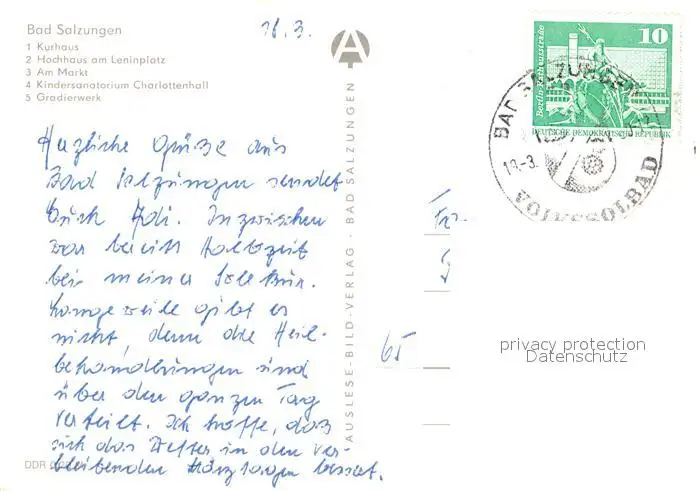 Bad Salzungen
1 Kurhaus
2 Hochhaus am Leninplatz
3 Am Markt
4 Kindersanatorium Charlottenhall
5 Gradierwerk
18.3.
Herzliche Grüße aus
Bad Salzungen sendet
Euch Adi. Inzwischen
war bereits Halbzeit
bei meiner Solekur.
Langeweile gibt es
nicht, denn die Heil-
behandlungen sind
über den ganzen Tag
verteilt. Ich hoffe, daß
sich das Wetter in den ver-
bleibenden Märztagen bessert.
DDR
AUSLESE-BILD-VERLAG · BAD SALZUNGEN
65
10
Berlin Rathausstraße
DEUTSCHE DEMOKRATISCHE REPUBLIK
BAD SALZUNGEN
18.-3.
VOLKSSOLBAD
privacy protection
Datenschutz